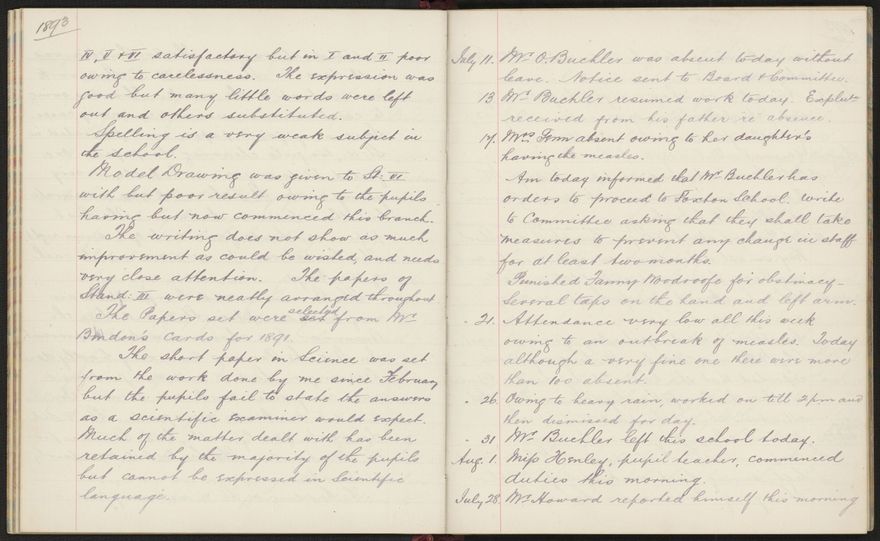 1893
IV, V & VI satisfactory but in I and II poor
owing to carelessness. The expression was
good but many little words were left
out and others substituted.
Spelling is a very weak subject in
the school.
Model Drawing was given to St: VI
with but poor result owing to the pupils
having but now commenced this branch.
The writing does not show as much
improvement as could be wished, and needs
very close attention. The papers of
Stand: III were neatly arranged throughout
The Papers set were selected from Mr
Bindon's Cards for 1891.
The short paper in Science was set
from the work done by me since February
but the pupils fail to state the answers
as a scientific examiner would expect.
Much of the matter dealt with has been
retained by the majority of the pupils
but cannot be expressed in Scientific
language.
July 11. Mr O. Buchler was absent today without
leave. Notice sent to Board & Committee.
13 Mr Buchler resumed work today. Explntn
received from his father re absence.
17. Mrs Fem absent owing to her daughter's
having the measles.
Am today informed that Mr Buchler has
orders to proceed to Foxton School. Write
to Committee asking that they shall take
measures to prevent any change in staff
for at least two months.
Punished Fanny Woodroofe for obstinacy -
Several taps on the hand and left arm.
- 21. Attendance very low all this week
owing to an outbreak of measles. Today
although a very fine one there were more
than 100 absent.
- 26. Owing to heavy rain, worked on till 2 pm and
then dismissed for day.
- 31 Mr Buchler left this school today.
Aug. 1. Miss Henley, pupil teacher, commenced
duties this morning.
July 28. Mr Howard reported himself this morning